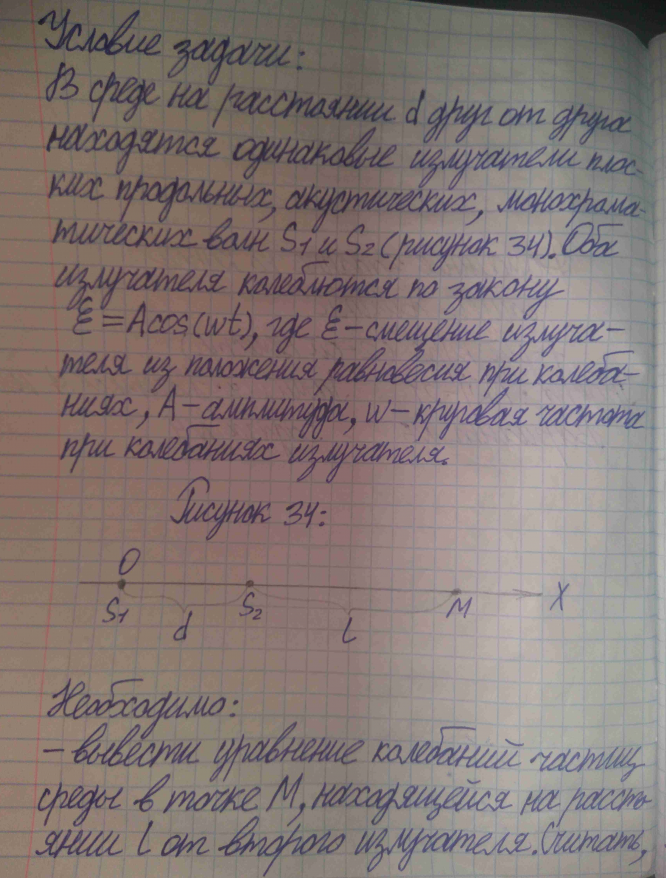 Условие задачи:
В среде на расстоянии d друг от друга
находятся одинаковые излучатели плос-
ких продольных, акустических, монохрома-
тических волн S1 и S2 (рисунок 34). Оба
излучателя колеблются по закону
ξ=Acos(wt), где ξ-смещение излуча-
теля из положения равновесия при колеба-
ниях, A-амплитуда, w-круговая частота
при колебаниях излучателя.
Рисунок 34:
O
S1 d S2 l M X
Необходимо:
- вывести уравнение колебаний частиц
среды в точке M, находящейся на рассто-
янии l от второго излучателя. Считать,